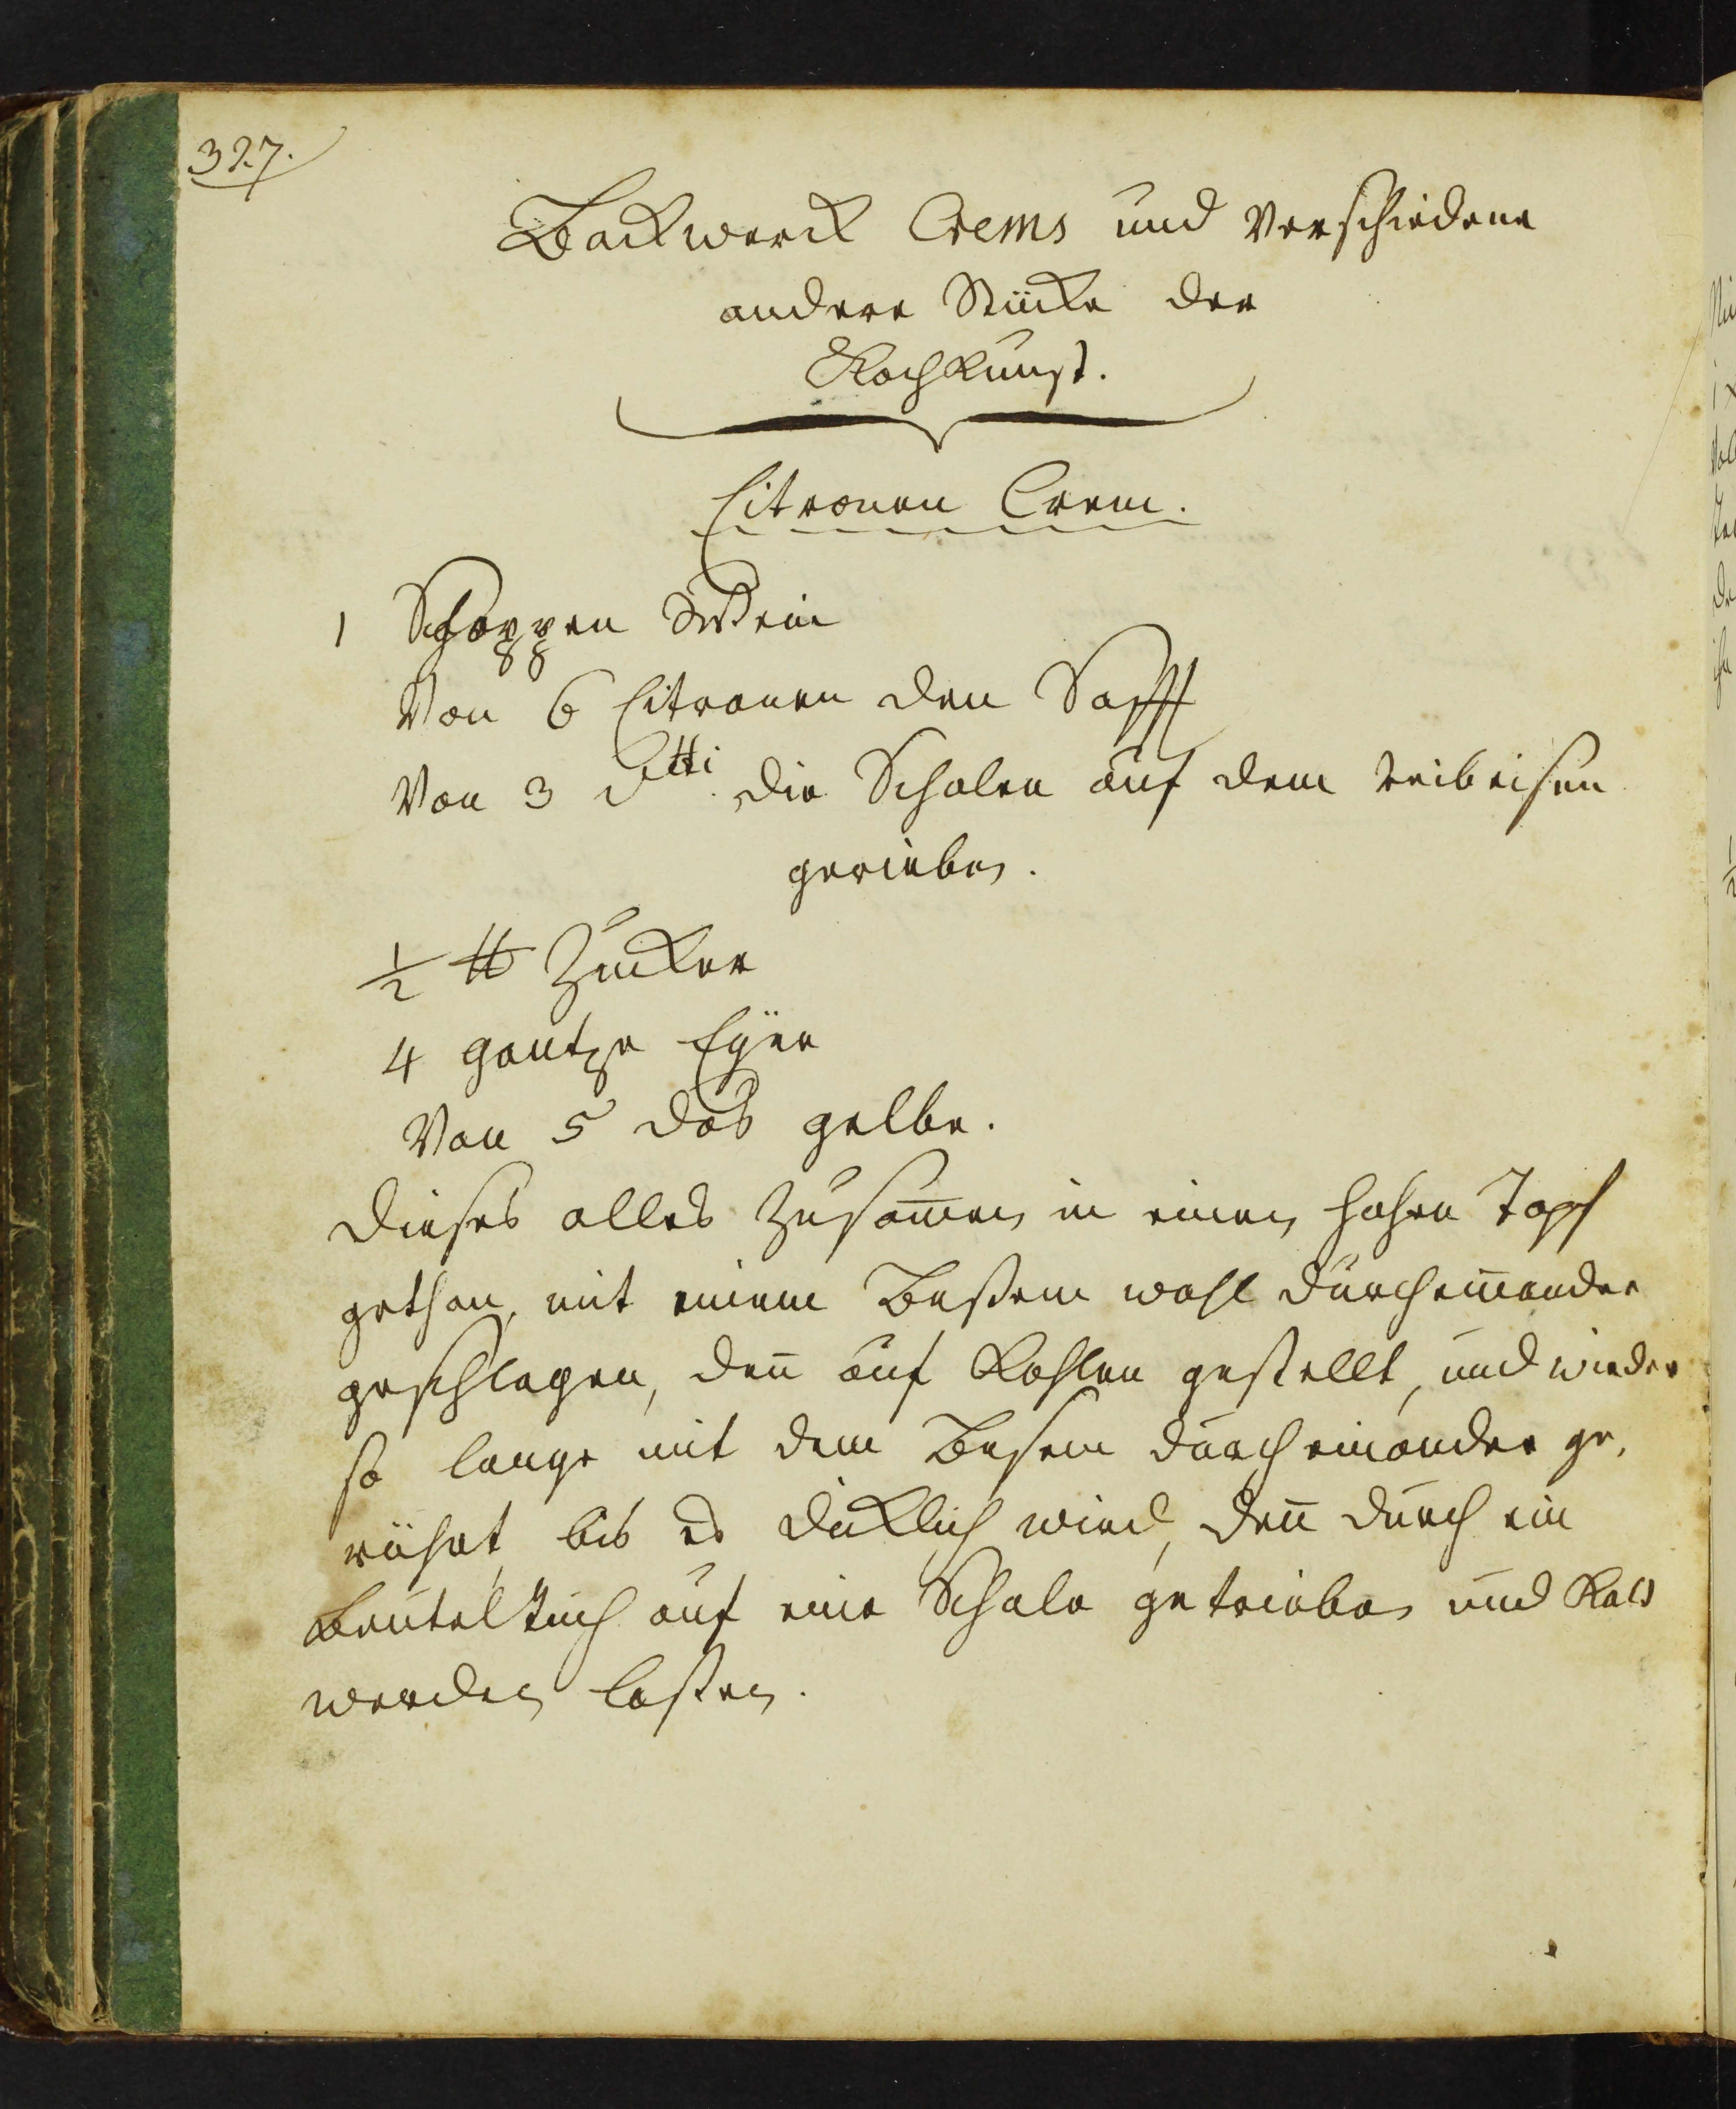 327.
Backwerck Crems und verschiedene
andere Stücke der
Kochkunst.
Citronen Crem.
1 Schoppen Wein
Von 6 Citronen den Safft
Von 3 dtti die Schalen auf dem reibeisen
gerieben.
½ ℔ Zucker
4 gantze Eÿer
Von 5 das gelbe.
Dieses alles zusam̄en in einen hohen Topf
gethan, mit einem Beßem wohl durcheinander
geschlagen, den̄ auf Kohlen gestellt, und wieder
so lange mit dem Besem durch einander ge,
rührt, bis es dicklich wird, den̄ durch ein
Beuteltuch auf eine Schale getrieben und Kald
werden laßen.